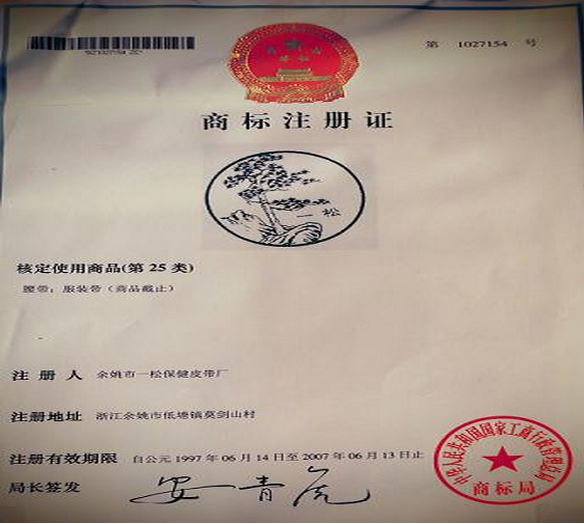 第 1027154 号
商标注册证
一松
核定使用商品(第 25 类)
腰带；服装带（商品截止）
注册人 余姚市一松保健皮带厂
注册地址 浙江余姚市低塘镇莫剑山村
注册有效期限 自公元 1997 年 06 月 14 日至 2007 年 06 月 13 日止
局长签发
中华人民共和国国家工商行政管理局
商标局